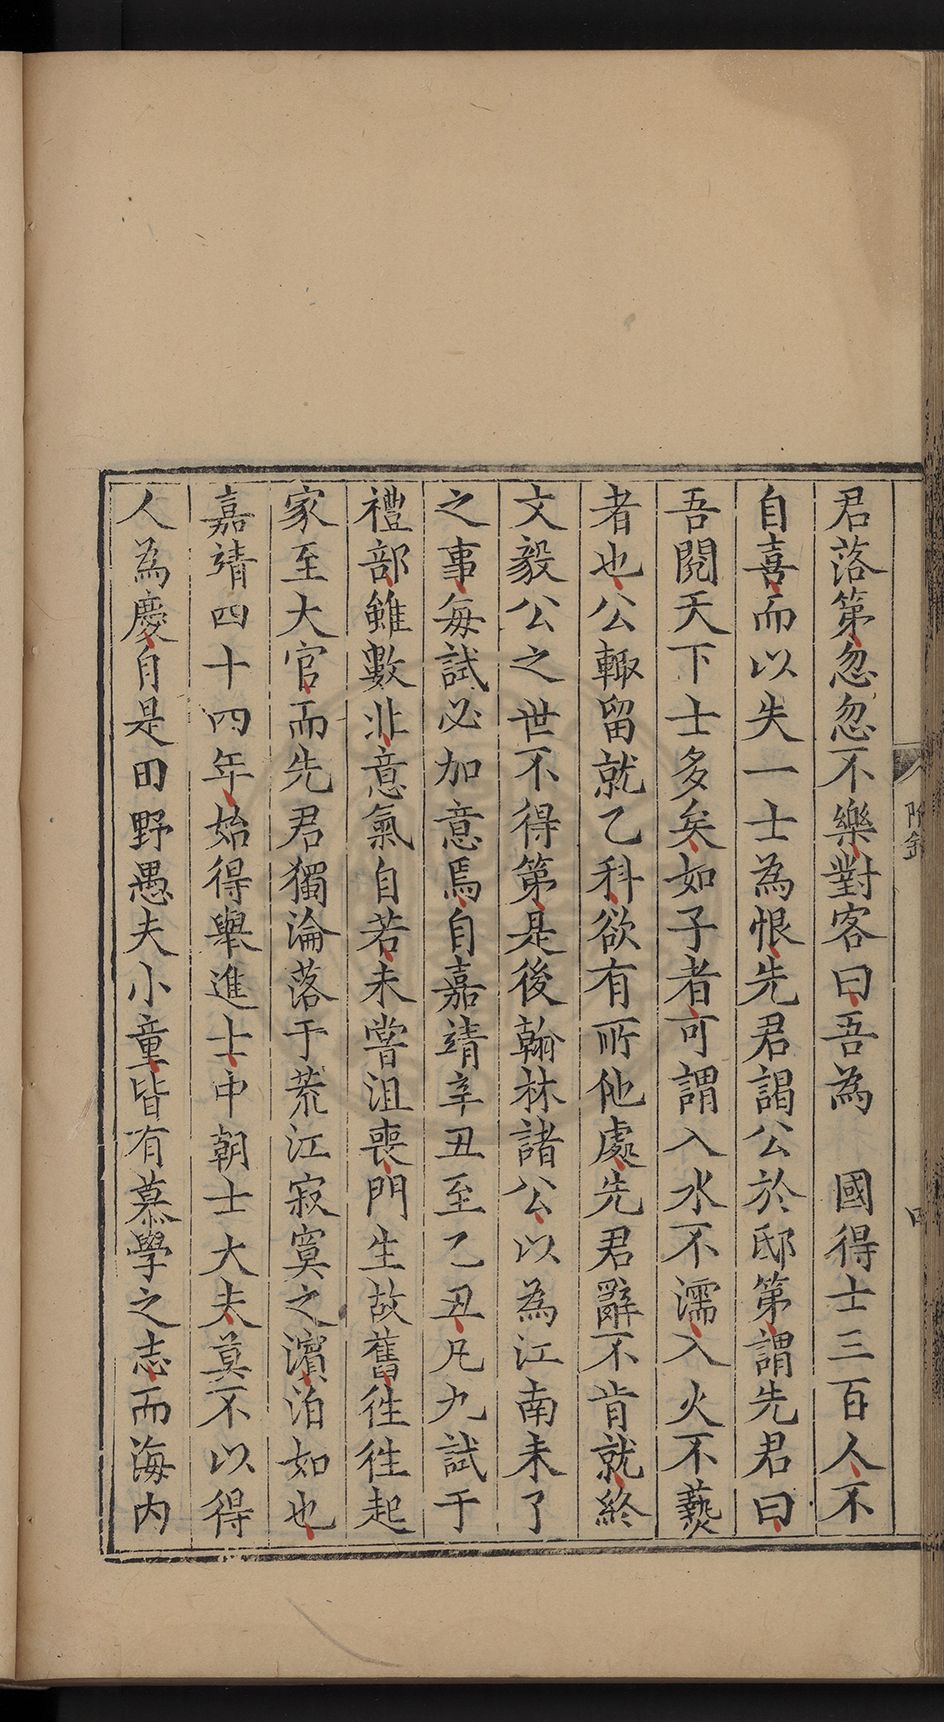 君落第忽忽不樂對客曰吾為　國得士三百人不
自喜而以失一士為恨先君謁公於邸第謂先君曰
吾閱天下士多矣如子者可謂入水不濡入火不爇
者也公輙留就乙科欲有所他處先君辭不肯就終
文毅公之世不得第是後翰林諸公以為江南未了
之事每試必加意焉自嘉靖辛丑至乙丑凡九試于
禮部雖數非意氣自若未嘗沮喪門生故舊徃徃起
家至大官而先君獨淪落于荒江寂寞之濵泊如也
嘉靖四十四年始得舉進士中朝士大夫莫不以得
人為慶自是田野愚夫小童皆有慕學之志而海内
附錄
四